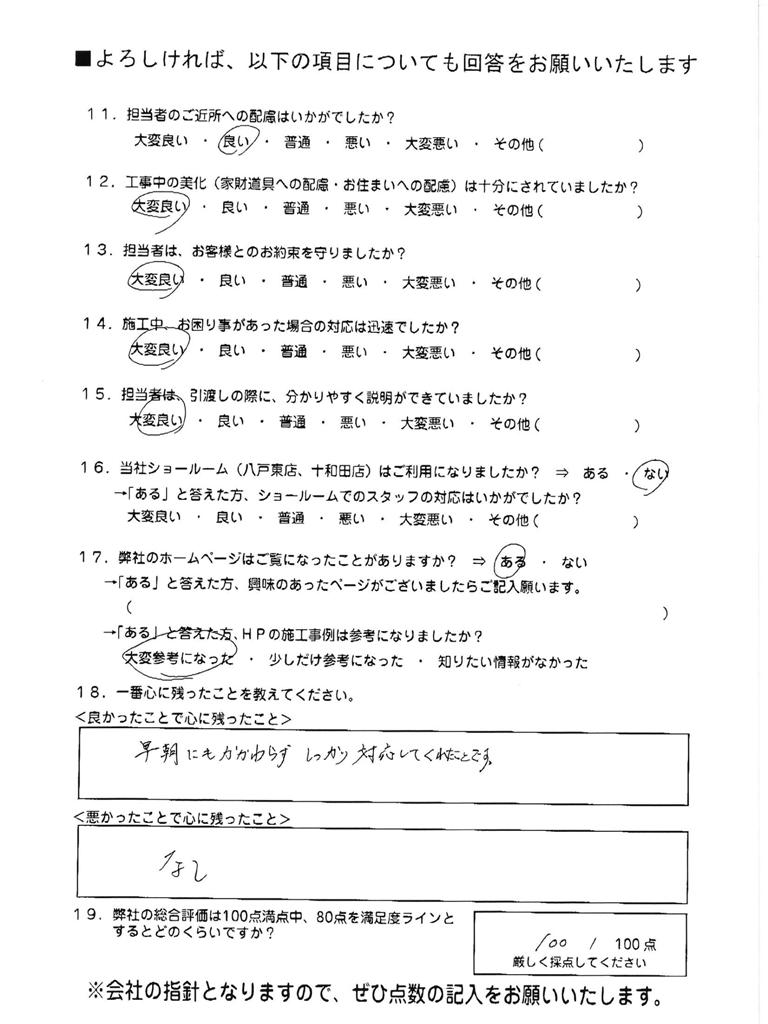 ■よろしければ、以下の項目についても回答をお願いいたします
11．担当者のご近所への配慮はいかがでしたか？
大変良い ・ 良い ・ 普通 ・ 悪い ・ 大変悪い ・ その他（　　　　　　）
12．工事中の美化（家財道具への配慮・お住まいへの配慮）は十分にされていましたか？
大変良い ・ 良い ・ 普通 ・ 悪い ・ 大変悪い ・ その他（　　　　　　）
13．担当者は、お客様とのお約束を守りましたか？
大変良い ・ 良い ・ 普通 ・ 悪い ・ 大変悪い ・ その他（　　　　　　）
14．施工中、お困り事があった場合の対応は迅速でしたか？
大変良い ・ 良い ・ 普通 ・ 悪い ・ 大変悪い ・ その他（　　　　　　）
15．担当者は、引渡しの際に、分かりやすく説明ができていましたか？
大変良い ・ 良い ・ 普通 ・ 悪い ・ 大変悪い ・ その他（　　　　　　）
16．当社ショールーム（八戸東店、十和田店）はご利用になりましたか？ ⇒ ある ・ ない
→「ある」と答えた方、ショールームでのスタッフの対応はいかがでしたか？
大変良い ・ 良い ・ 普通 ・ 悪い ・ 大変悪い ・ その他（　　　　　　）
17．弊社のホームページはご覧になったことがありますか？ ⇒ ある ・ ない
→「ある」と答えた方、興味のあったページがございましたらご記入願います。
（　　　　　　　　　　　　　　　　　　　　）
→「ある」と答えた方、HPの施工事例は参考になりましたか？
大変参考になった ・ 少しだけ参考になった ・ 知りたい情報がなかった
18．一番心に残ったことを教えてください。
＜良かったことで心に残ったこと＞
早朝にもかかわらず しっかり対応してくれたことです。
＜悪かったことで心に残ったこと＞
なし
19．弊社の総合評価は100点満点中、80点を満足度ラインと
するとどのくらいですか？
100 / 100点
厳しく採点してください
※会社の指針となりますので、ぜひ点数の記入をお願いいたします。